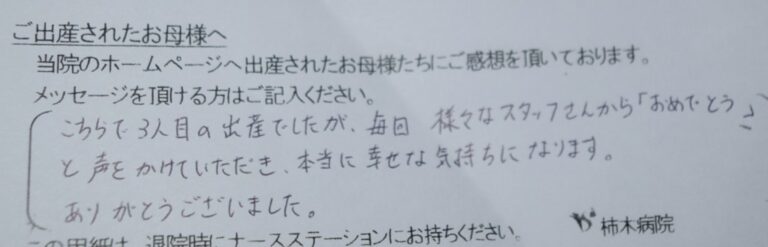 ご出産されたお母様へ
当院のホームページへ出産されたお母様たちにご感想を頂いております。
メッセージを頂ける方はご記入ください。
こちらで3人目の出産でしたが、毎回 様々なスタッフさんから「おめでとう」
と声をかけていただき、本当に幸せな気持ちになります。
ありがとうございました。
柿木病院
この用紙は、退院時にナースステーションにお持ちください。